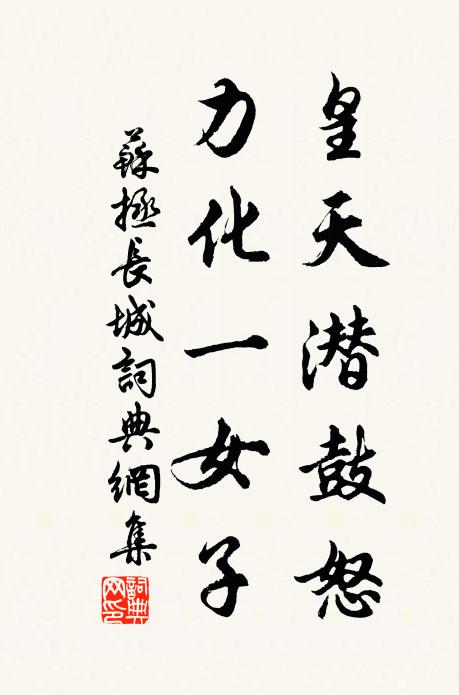 皇天潜鼓怒
力化一女子
蘇拯長城詞典網集
詞典网印